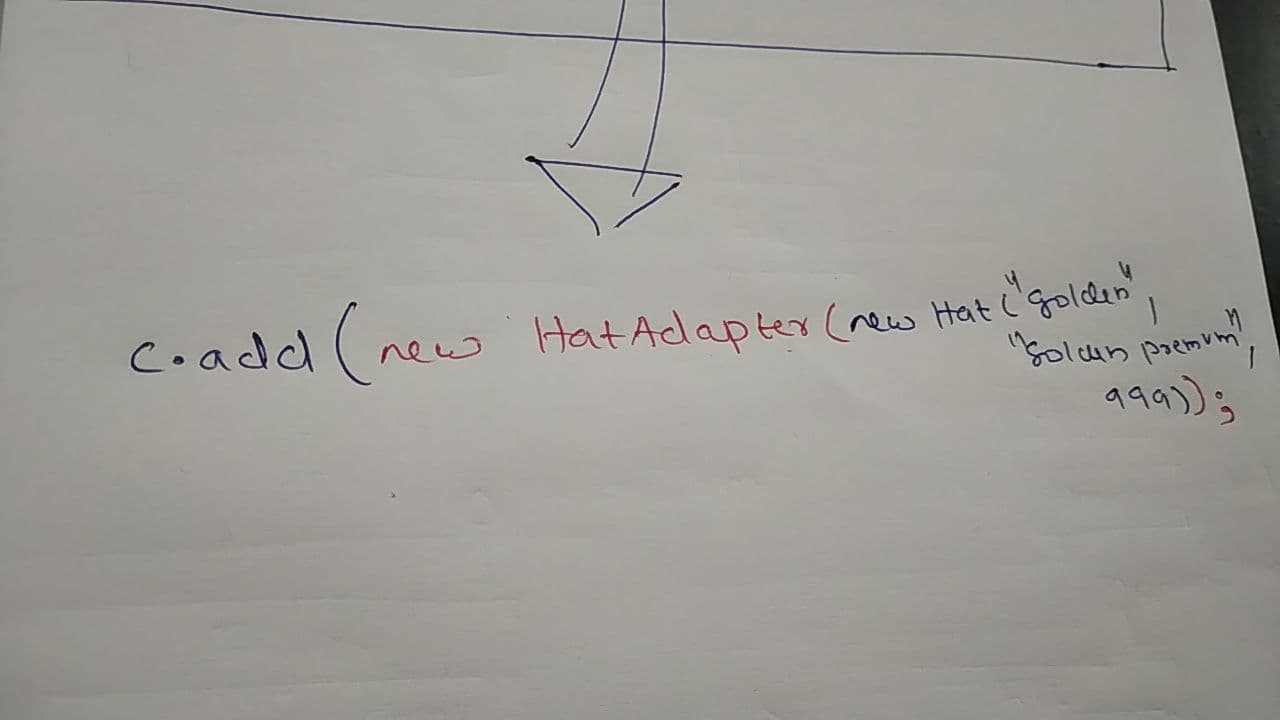 c.add(new HatAdapter(new Hat("golden",
"Golden premum",
999));